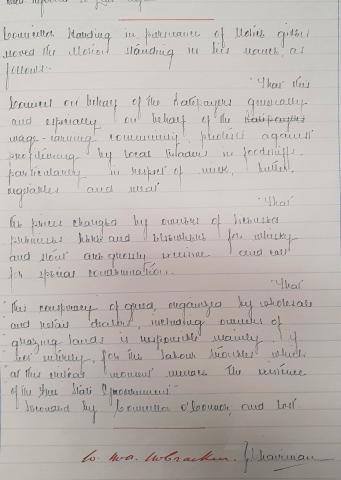 Councillor Standing in pursuance of Notice given
moved the Motion standing in his name, as
follows:
"That this
Council on behalf of the Ratepayers generally
and especially on behalf of the Ratepayers
wage-earning community, protest against
profiteering by local traders in foodstuffs
particularly in respect of milk, butter,
vegetables and meat
"That
the prices charged by owners of licensed
premises here and elsewhere for whisky
and stout are grossly excessive and call
for special condemnation.
"That
this conspiracy of greed, organized by wholesale
and retail dealers, including owners of
grazing lands is responsible mainly, if
not entirely, for the labour troubles which
at this critical moment menace the existence
of the Free State Government"
Seconded by Councillor O'Connor, and lost
W. McCracken. Chairman